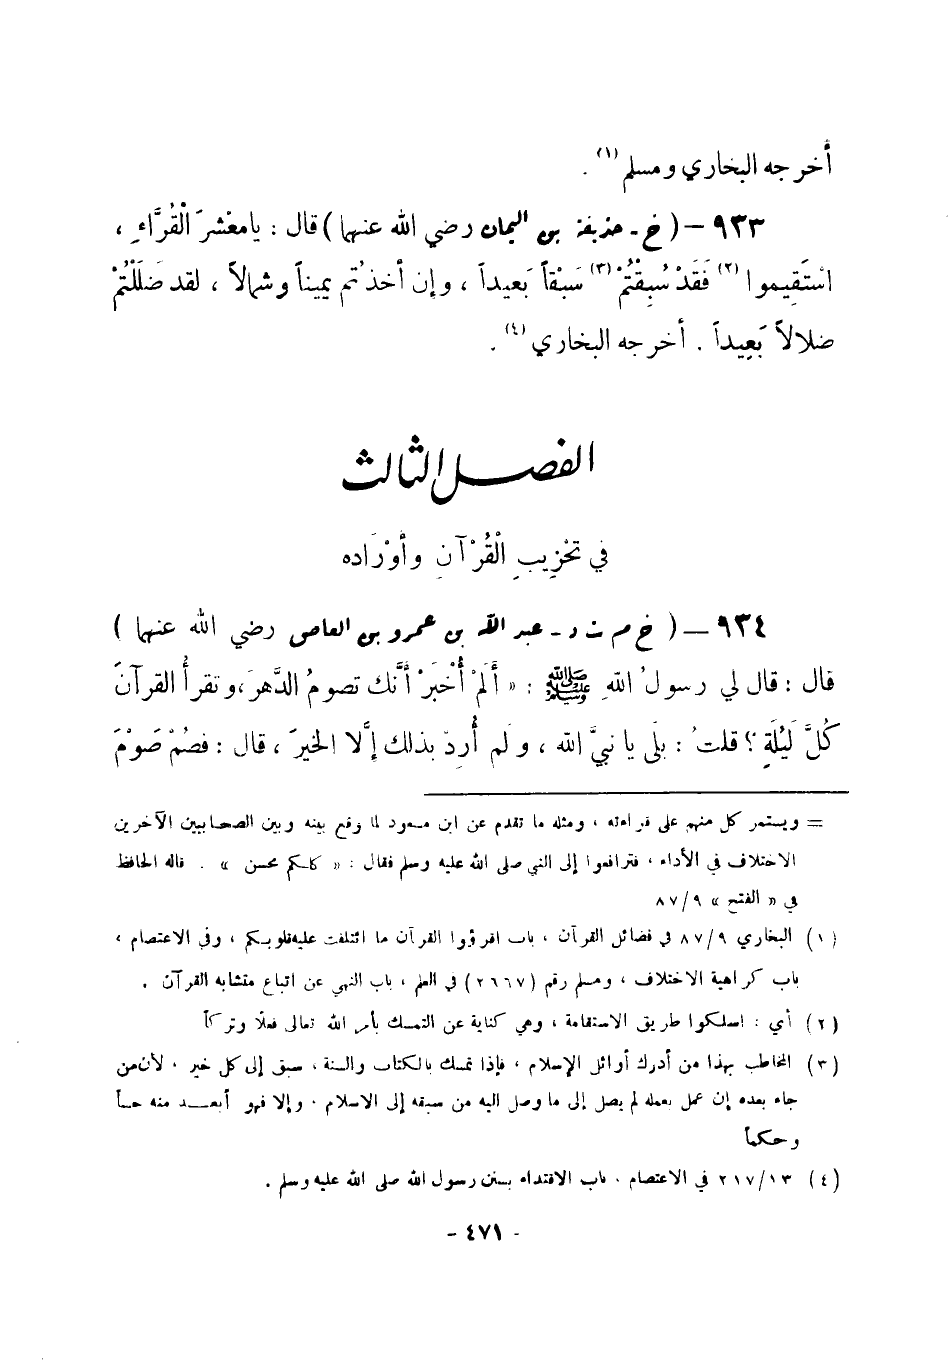 أخرجه البخاري ومسلم (١) .
٩٣٣ – ( خ - حذيفة بن اليمان رضي الله عنهما ) قال : يا معْشرَ الْقُرَّاءِ ،
اسْتَقِيموا (٢) فَقَدْ سُبِقْتُمْ (٣) سَبْقاً بَعيداً ، وإن أخذتُم يميناً وشمالاً ، لقد ضَلَلْتُمْ
ضلالاً بَعِيداً . أخرجه البخاري (٤) .
الفصل الثالث
في تحْزِيبِ الْقُرْآنِ وأوْرَاده
٩٣٤ – ( خ م ت د - عبد الله بن عمرو بن العاص رضي الله عنهما )
قال : قال لي رسولُ اللهِ ﷺ : « أَلَمْ أُخْبَرْ أنَّك تصومُ الدَّهرَ ، وتقرأُ القرآنَ
كُلَّ لَيْلَةٍ ؟ قلتُ : بلَى يا نبيَّ الله ، ولم أُرِدْ بذلك إلَّا الخيرَ ، قال : فصُمْ صَوْمَ
= ويستمر كل منهم على قراءته ، ومثله ما تقدم عن ابن مسعود لما وقع بينه وبين الصحابيين الآخرين
الاختلاف في الأداء ، فترافعوا إلى النبي صلى الله عليه وسلم فقال : « كلكم محسن » . قاله الحافظ
في « الفتح » ٨٧/٩
(١) البخاري ٨٧/٩ في فضائل القرآن ، باب اقرؤوا القرآن ما ائتلفت عليه قلوبكم ، وفي الاعتصام ،
باب كراهية الاختلاف ، ومسلم رقم (٢٦٦٧) في العلم ، باب النهي عن اتباع متشابه القرآن .
(٢) أي : اسلكوا طريق الاستقامة ، وهي كناية عن التمسك بأمر الله تعالى فعلًا وتركاً
(٣) المخاطب بهذا من أدرك أوائل الإسلام ، فإذا تمسك بالكتاب والسنة ، سبق إلى كل خير . لأن من
جاء بعده إن عمل بعمله لم يصل إلى ما وصل اليه من سبقه إلى الاسلام . وإلا فهو أبعد منه حساً
وحكماً
(٤) ٢١٧/١٣ في الاعتصام . باب الاقتداء بسنن رسول الله صلى الله عليه وسلم .
- ٤٧١ -